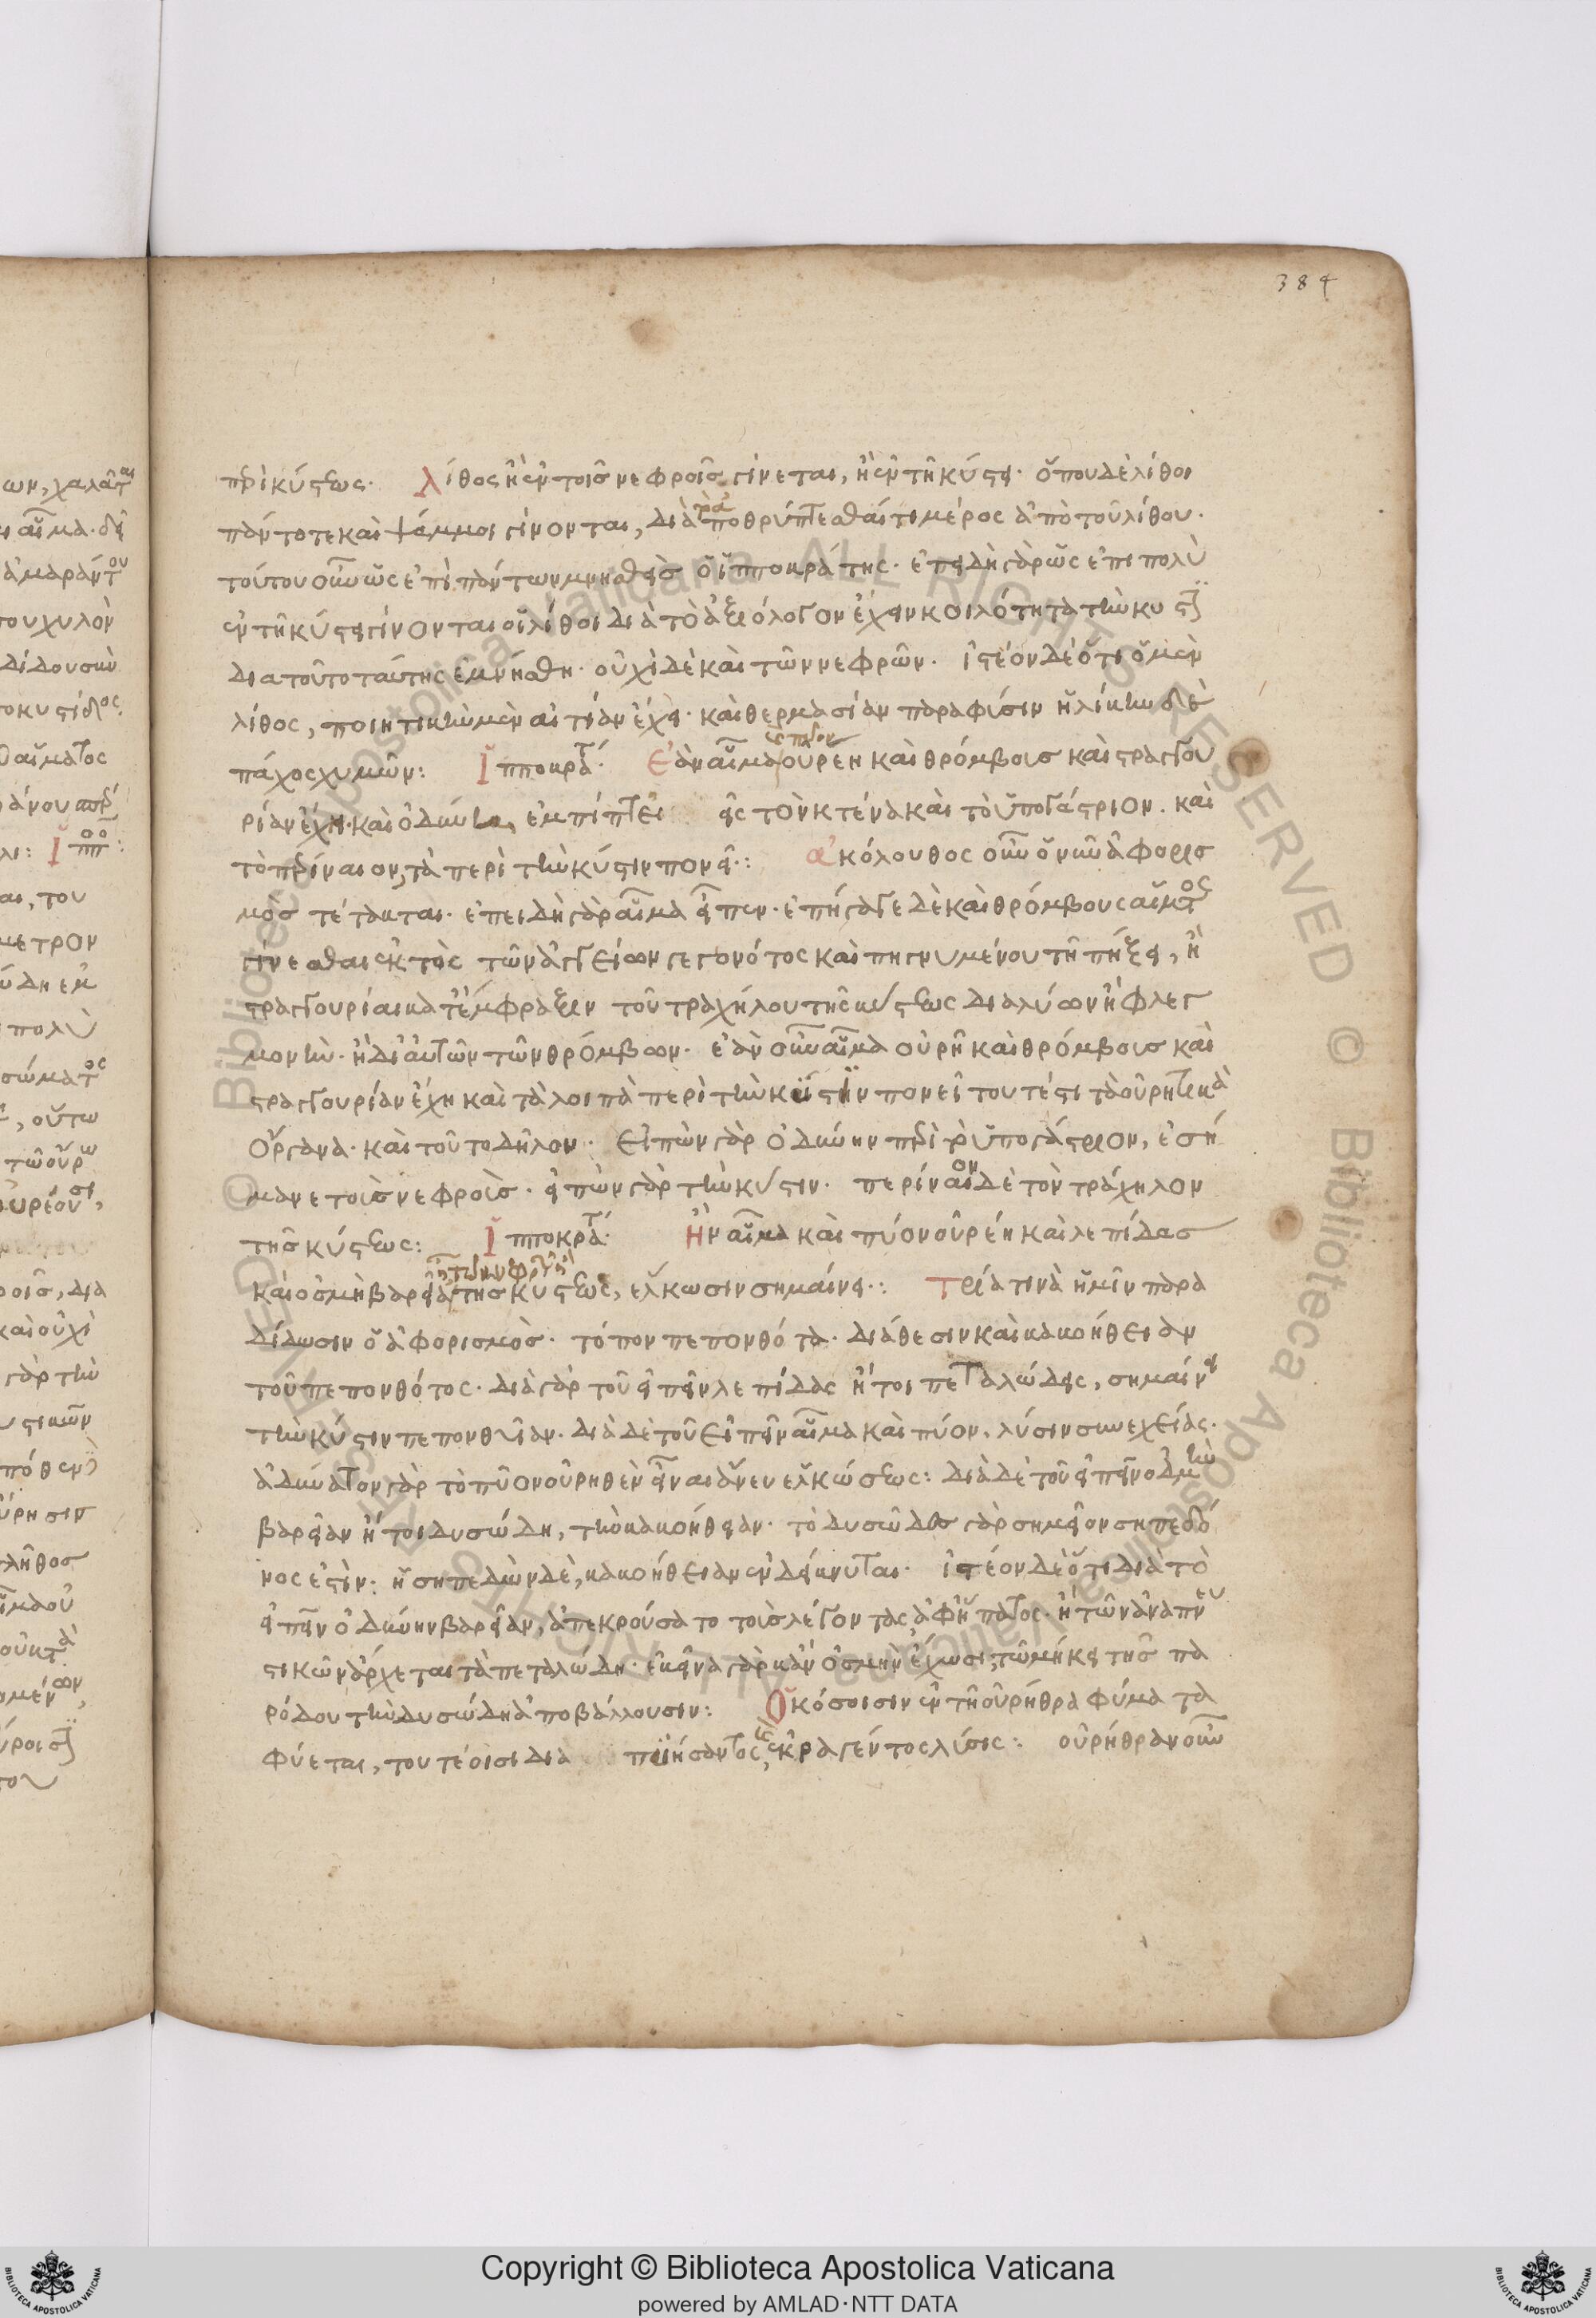 384
περὶ κύστεως. Λίθος ἢ ἐν τοῖς νεφροῖς γίνεται, ἢ ἐν τῆ κύστει. ὅπου δὲ λίθοι
πάντοτε καὶ ψάμμοι γίνονται, διὰ τὸ ἀποθρύπτεσθαί τι μέρος ἀπὸ τοῦ λίθου.
τούτου οὖν ὡς ἐπὶ πάντων μνησθεὶς ὁ ἱπποκράτης. ἐπειδὴ γὰρ ὡς ἐπι πολὺ
ἐν τῆ κύστει γίνονται οἱ λίθοι διὰ τὸ ἀξιόλογον ἔχειν κοιλότητα τὴν κύστιν
δια τοῦτο ταύτης ἐμνήσθη. οὐχὶ δὲ καὶ τῶν νεφρῶν. ἰστέον δὲ ὅτι ὁ μὲν
λίθος, ποιητικὴν μὲν αἰτίαν ἔχει. καὶ θερμασίαν παραφύσιν ὑλικὴν δὲ
πάχος χυμῶν: Ἱπποκράτ. Ἐὰν αἷμα οὐρέη καὶ θρόμβους καὶ στραγγου
ρίαν ἔχη. καὶ ὀδύνη, ἐμπίπτει εἰς τὸν κτένα καὶ τὸ ὑπογάστριον. καὶ
τὸ περίναιον, τὰ περὶ τὴν κύστιν πονεῖ: ἀκόλουθος οὖν ὁ νῦν ἀφορισ
μὸς τέτακται. ἐπειδὴ γὰρ αἷμα εἶπεν. ἐπήγαγε δὲ καὶ θρόμβους αἵματος
γίνεσθαι ἐκτὸς τῶν ἀγγείων γεγονότος καὶ πηγνυμένου τῆ πήξει, ἢ
στραγγουρίαι κατ' ἔμφραξιν τοῦ τραχήλου τῆς κύστεως διαλύων ἢ φλεγ
μονὴν. ἢ δι' αὐτῶν τῶν θρόμβων. ἐὰν οὖν αἷμα οὐρῆ καὶ θρόμβους καὶ
στραγγουρίαν ἔχη καὶ τὰ λοιπὰ περὶ τὴν κύστιν πονεῖ τουτέστι τὰ οὐρητικὰ
ὄργανα. καὶ τοῦτο δῆλον. εἰπὼν γὰρ ὀδύνην περὶ τὸ ὑπογάστριον, ἐσή
μανε τοῖς νεφροῖς. εἰπὼν γὰρ τὴν κύστιν. περίναιον δὲ τὸν τράχηλον
τῆς κύστεως: Ἱπποκράτ. Ἢν αἷμα καὶ πύον οὐρέη καὶ λεπίδας
καὶ ὀσμὴ βαρεῖα τῆς κύστεως, ἕλκωσιν σημαίνει: Τρία τινὰ ἡμῖν παρα
δίδωσιν ὁ ἀφορισμὸς. τόπον πεπονθότα. διάθεσιν καὶ κακοήθειαν
τοῦ πεπονθότος. διὰ γὰρ τοῦ εἰπεῖν λεπίδας ἤτοι πεταλώδεις, σημαίνει
τὴν κύστιν πεπονθυῖαν. διὰ δὲ τοῦ εἰπεῖν αἷμα καὶ πύον, λύσιν συνεχείας.
ἀδύνατον γὰρ τὸ πῦον οὐρηθὲν εἶναι ἄνευ ἑλκώσεως: διὰ δὲ τοῦ εἰπεῖν ὀδμὴν
βαρεῖαν ἤτοι δυσώδη, τὴν κακοήθειαν. τὸ δυσῶδες γὰρ σημεῖον σηπεδό
νος ἐστὶν: ἡ σηπεδὼν δὲ, κακοήθειαν ἐνδείκνυται. ἰστέον δὲ ὅτι διὰ τὸ
εἰπεῖν ὀδύνην βαρεῖαν, ἀπεκρούσατο τοὺς λέγοντας, ἀφ' ἥπατος. ἢ τῶν ἀναπνευ
στικῶν ἄρχεται τὰ πεταλώδη. ἐκεῖνα γὰρ κἂν ὀσμὴν ἔχωσι, τῶ μήκει τῆς πα
ρόδου τὴν δυσώδη ἀποβάλλουσιν: Ὁκόσοισιν ἐν τῆ οὐρήθρα φύματα
φύεται, τουτέοισι δια πυήσαντος καὶ ἐκραγέντος λύσις: οὐρήθραν οὖν